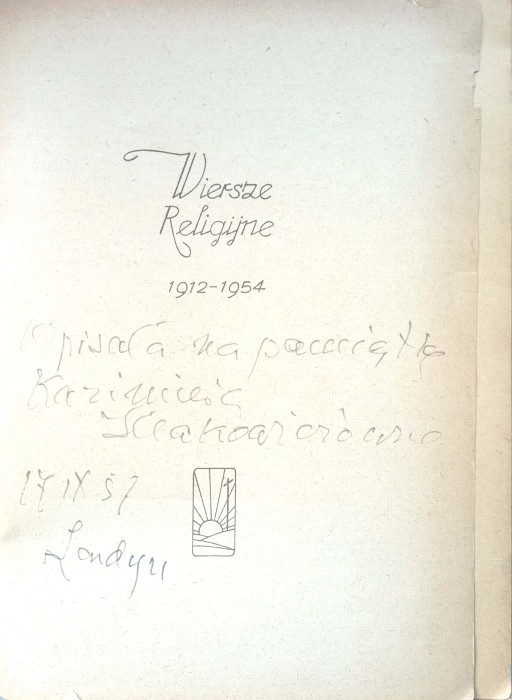 Wiersze
Religijne
1912-1954
Wpisała na pamiątkę
Kazimiera
Iłłakowiczówna
17 IX 57
Londyn